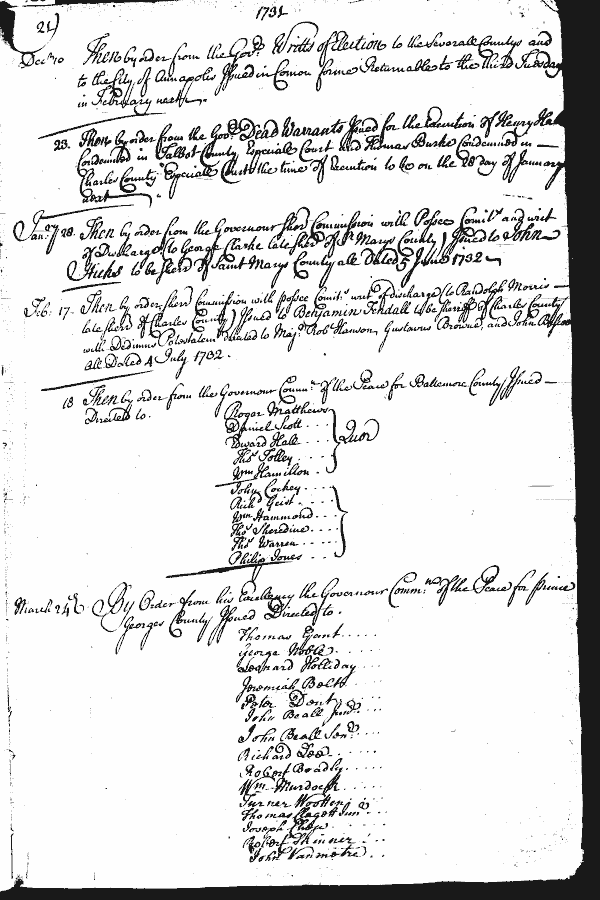 21)
1731
Decr 10 Then by order from the Govr. Writts of Election to the Severall Countys and
to the City of Annapolis Issued in Comon forme Returnable to the third Tuesday
in February next
23. Then by order from the Govr. Dead Warrants Issued for the Execution of Henry
Condemned in Talbot County Especiale Court and Thomas Burke Condemned in
Charles County Especiale Court the time of Execution to be on the 28 day of January
next
Janry 28. Then by order from the Governour Sherd Commission with Posse Comits and writ
of Discharge (to George Clarke late Sherd of St Marys County) Issued to John
Hicks to be Sherd of Saint Marys County all Dated 5 June 1732
Feb: 17. Then by order Sherr Commission with posse Comits writ of discharge (to Randolph Morris
late Sherr of Charles County) Issued to Benjamin Fendall to be Sherriff of Charles County
with Dedimus Potestatem directed to Majr Robt Hanson, Gustavus Browne, and John
all Dated 4 July 1732.
18 Then by order from the Governour Commn of the Peace for Baltemore County Issued
Directed to.
Roger Matthews
Daniel Scott . . .
Edward Hall . . . Quor
Thos Tolley . . .
Wm Hamillon . .
John Cockey . . .
Richd Geist . . . .
Wm Hammond . . .
Thos Sheredine . .
Thos Warren . . . .
Philip Jones . . . .
March 24 By Order from his Excellency the Governour Commn of the Peace for Prince
Georges County Issued Directed to.
Thomas Gant . . . .
George Noble . . . .
Leonard Holliday . . . .
Jeremiah Belt . . . .
Peter Dent . . . .
John Beall Junr . . . .
John Beall Senr . . . .
Richard Lee . . . .
Robert Bradly . . . .
Wm Murdock . . . .
Turner Wootten . . . .
Thomas Clagett Junr . . .
Joseph
Robert Skinner . . .
John Vanmetre . .